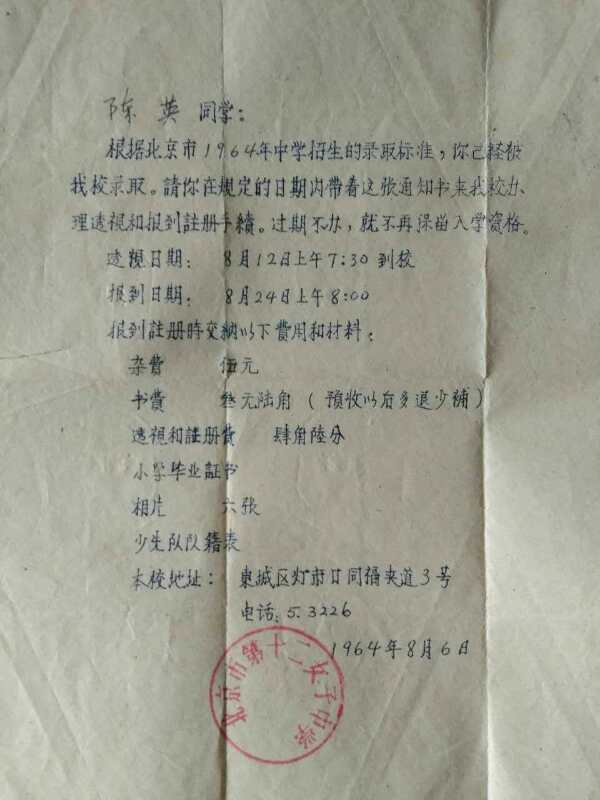 陈英 同学：
根据北京市1964年中学招生的录取标准，你已经被
我校录取。請你在規定的日期内带着这张通知书来我校办
理透視和报到註册手續。过期不办，就不再保留入学資格。
透視日期： 8月12日上午7:30 到校
报到日期： 8月24日上午8:00
报到註册時交納以下費用和材料：
杂費 伍元
书費 叁元陆角（预收以后多退少補）
透視和註册費 肆角陸分
小学毕业証书
相片 六张
少先队队籍表
本校地址： 東城区灯市口同福夹道3号
电话：5.3226
1964年8月6日
北京市第十二女子中学